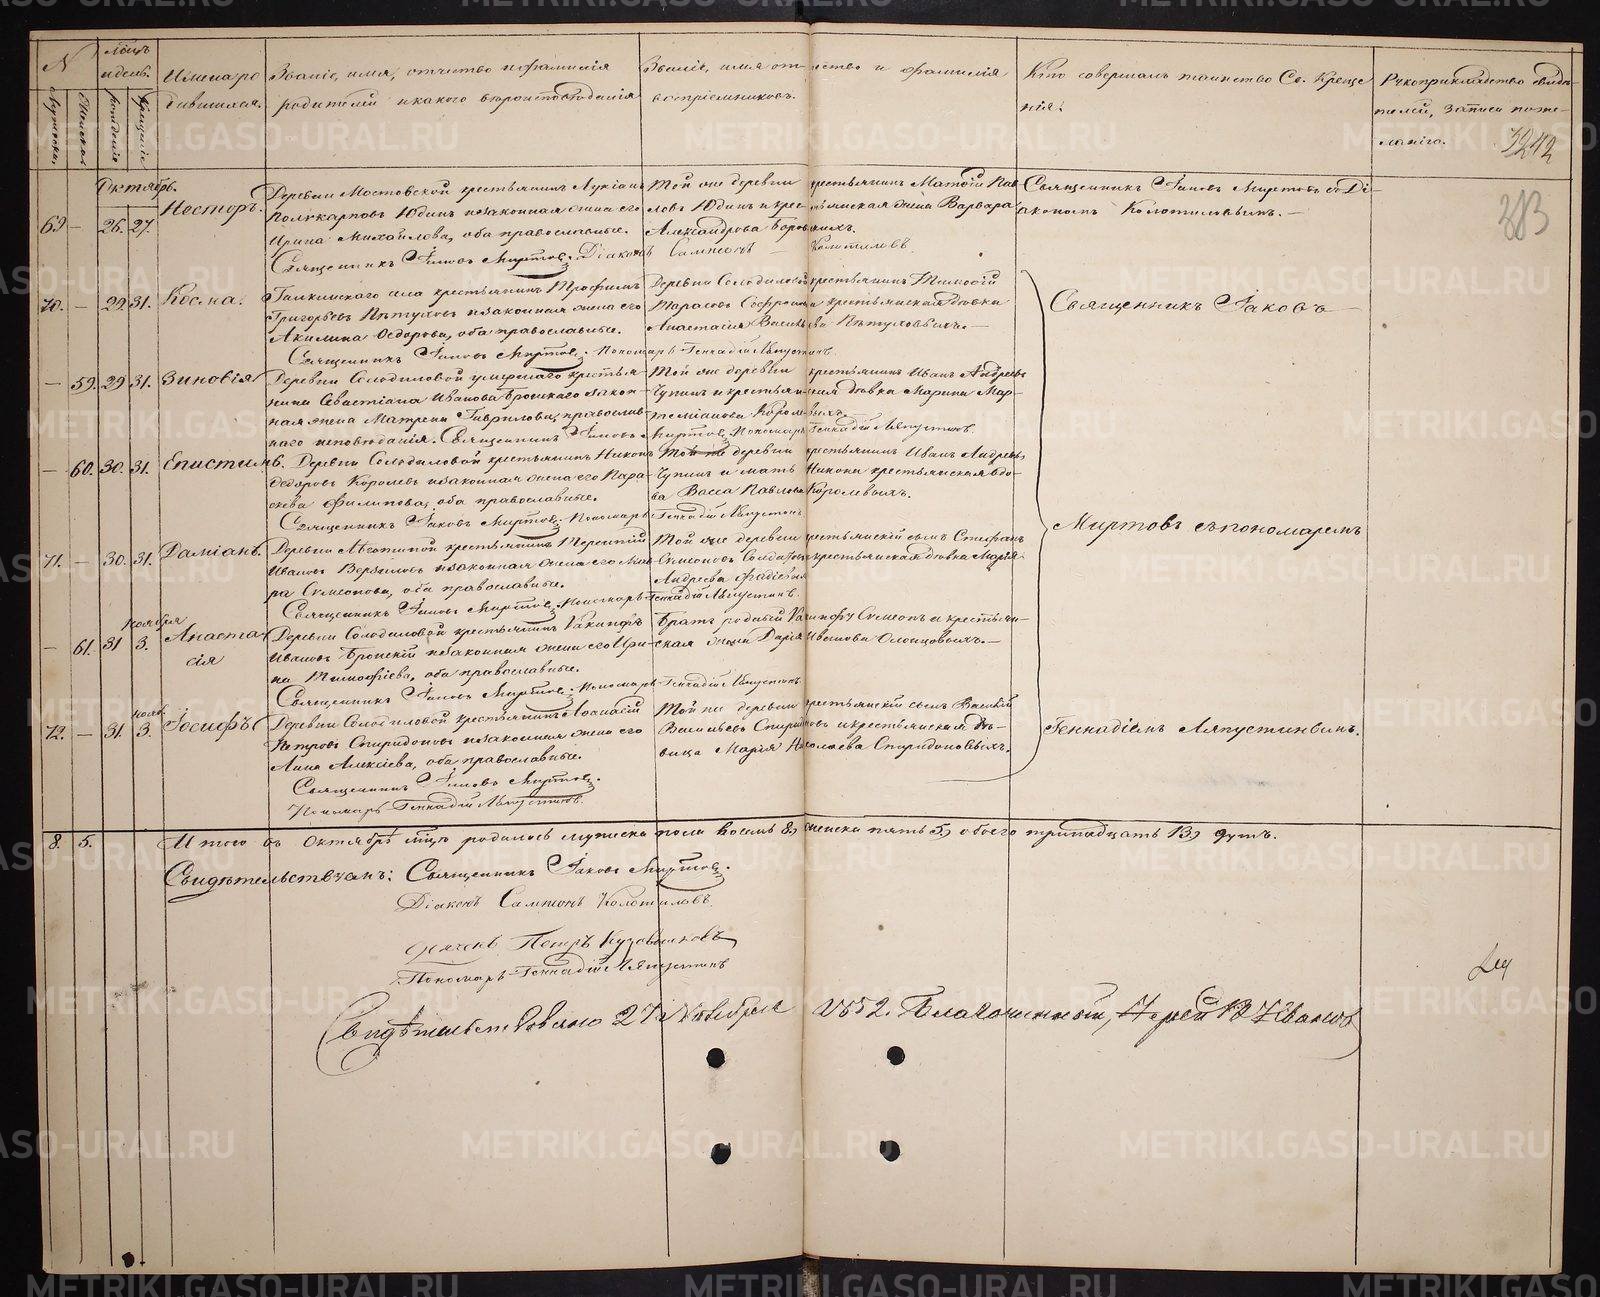 №
Мѣсяцъ и день.
Мужеска.
Женска.
рожденія
крещенія
Имена ро
дившихся.
Званіе, имя, отчество и фамилія
родителей и какого вѣроисповѣданія
Званіе, имя отчество и фамилія
воспріемниковъ.
Кто совершалъ таинство Св. Креще
нія.
Рукоприкладство свидѣ
телей, записи по же-
ланію.
3242
383
Октябрь.
69 — 26. 27. Несторъ.
Деревни Мостовской крестьянинъ Лукіанъ
Поликарповъ Юдинъ и законная жена его
Ирина Михайлова, оба православные.
Священникъ Іаковъ Миртовъ. Діаконъ Сампсонъ Колотиловъ.
Той же деревни крестьянинъ Матѳій Пав
ловъ Юдинъ и крестьянская жена Варвара
Александрова
Священникъ Іаковъ Миртовъ съ Ді
акономъ Колотиловымъ. —
70. — 29. 31. Косма.
села крестьянинъ Трофимъ
Григорьевъ Пѣтуховъ и законная жена его
Акилина Ѳедорова, оба православные.
Священникъ Іаковъ Миртовъ. Пономарь Геннадій Ляпустинъ.
Деревни Солодиловой крестьянинъ Тимоѳей
Тарасовъ и крестьянская дѣвка
Анастасія Васильева Пѣтуховыхъ. —
Священникъ Іаковъ
— 59. 29 31. Зиновія
Деревни Солодиловой умершаго крестья-
нина Севастіана Иванова Бронскаго закон-
ная жена Матрена Гаврилова, православ-
наго исповѣданія. Священникъ Іаковъ Миртовъ. Пономарь Геннадій Ляпустинъ.
Той же деревни крестьянинъ Иванъ Андреевъ
Чупинъ и крестьянская дѣвка Марина Мар-
теміанова Королевыхъ.
— 60. 30. 31. Епистимія.
Деревни Солодиловой крестьянинъ Никонъ
Ѳедоровъ Королевъ и законная жена его Пара-
скева Филипова, оба православные.
Священникъ Іаковъ Миртовъ. Пономарь Геннадій Ляпустинъ
Той же деревни крестьянинъ Иванъ Андреевъ
Чупинъ и мать Никона крестьянская вдо-
ва Васса Павлова Королевыхъ.
Миртовъ съ пономаремъ
71. — 30. 31. Даміанъ.
Деревни крестьянинъ Терентій
Ивановъ и законная жена его
Симеонова, оба православные.
Священникъ Іаковъ Миртовъ. Пономарь Геннадій Ляпустинъ.
Той же деревни крестьянскій сынъ Стефанъ
Симеоновъ и крестьянская дѣвка Марія
Андреева
ноября
— 61. 31 3. Анаста-
сія
Деревни Солодиловой крестьянинъ Іакинфъ
Ивановъ Бронскій и законная жена его Ири-
на Тимофѣева, оба православные.
Священникъ Іаковъ Миртовъ. Пономарь Геннадій Ляпустинъ
Братъ родный Іакинфу Симеонъ и крестьян-
ская жена Дарія Иванова
нояб.
72. — 31. 3. Іосифъ
Деревни Солодиловой крестьянинъ Аѳанасій
Петровъ Спиридоновъ и законная жена его
Анна Алексіева, оба православные.
Священникъ Іаковъ Миртовъ.
Пономарь Геннадій Ляпустинъ.
Той же деревни крестьянскій сынъ Василій
Васильевъ Спиридоновъ и крестьянская дѣ-
вица Марія Николаева Спиридоновыхъ.
Геннадіемъ Ляпустинымъ.
8. 5. Итого въ Октябрѣ мѣсяцѣ родилось мужеска пола восемь 8, женска пять 5, обоего тринадцать 13, душъ.
Свидѣтельствуемъ: Священникъ Іаковъ Миртовъ.
Діаконъ Сампсонъ Колотиловъ.
Дьячекъ Петръ Кузовниковъ
Пономарь Геннадій Ляпустинъ
Свидѣтельствовано 27 Ноября 1852. Благочинный, Іерей В. Ивановъ
METRIKI.GASO-URAL.RU